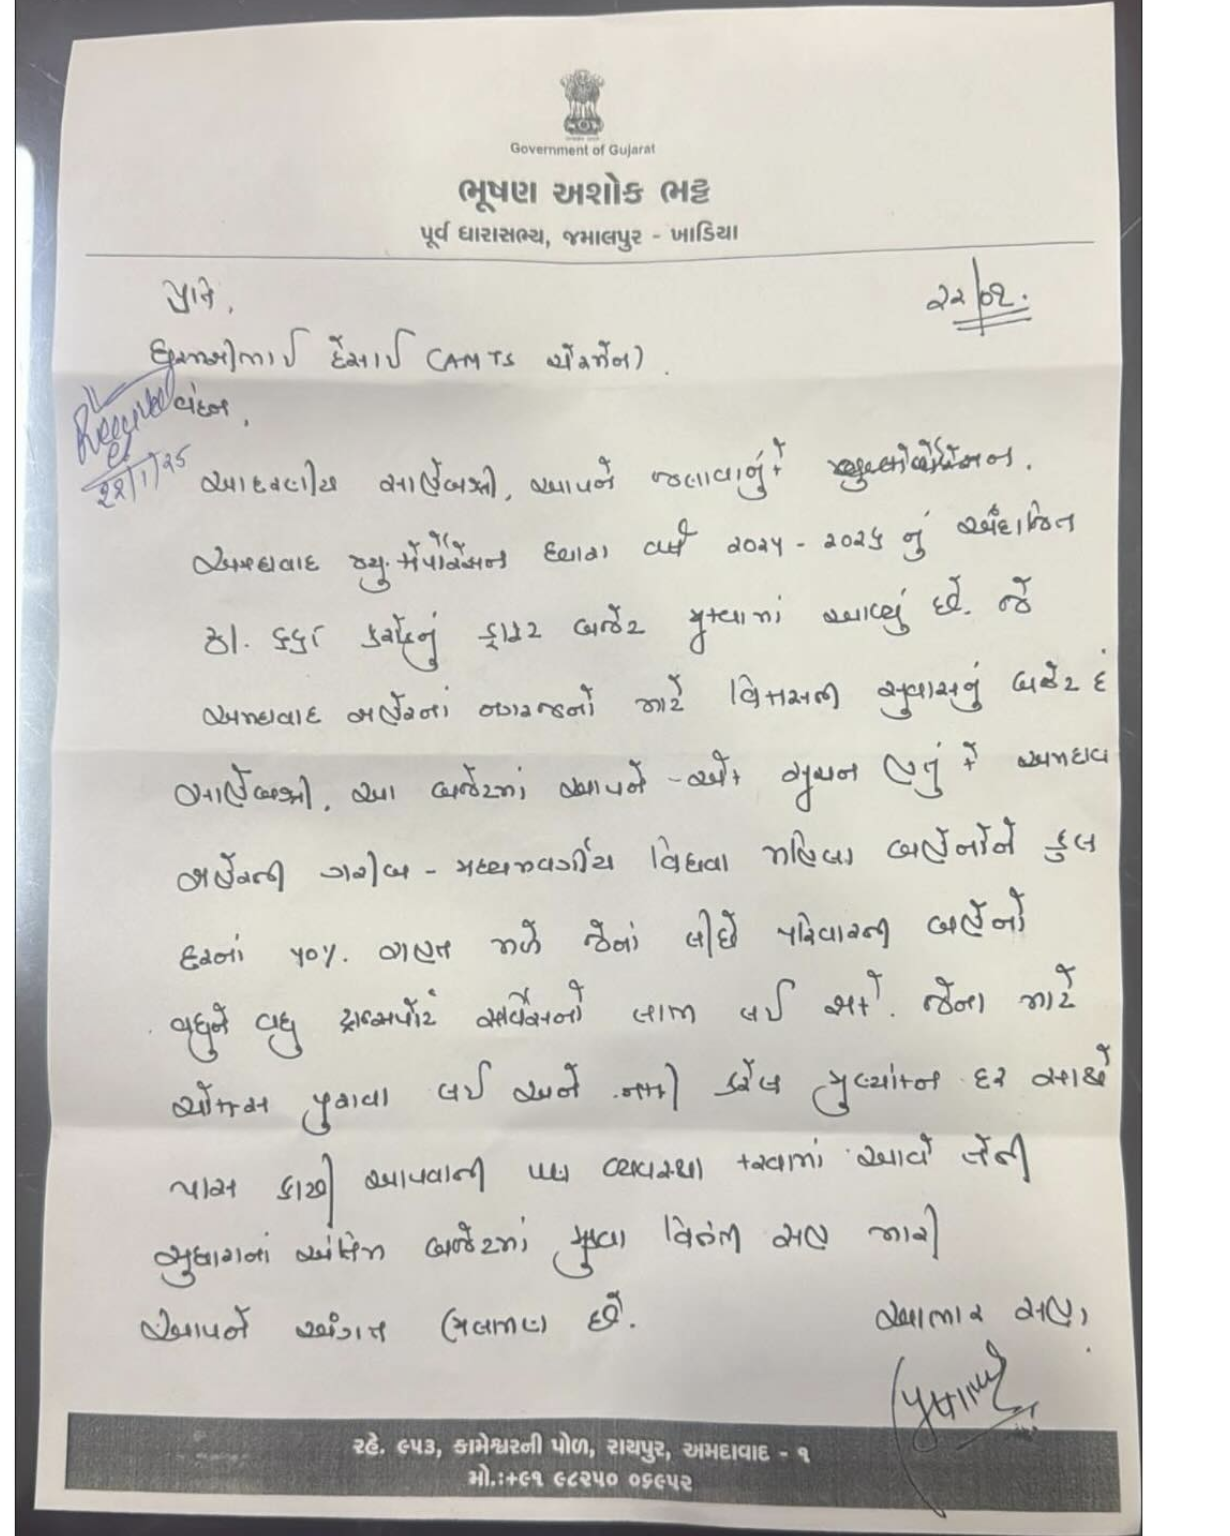 Government of Gujarat
ભૂષણ અશોક ભટ્ટ
પૂર્વ ધારાસભ્ય, જમાલપુર - ખાડિયા
પ્રતિ,
૨૨/૦૧.
ધરમશીભાઈ દેસાઈ (AMTS ચેરમેન).
Received
વંદન,
૨૨/૧/૨૫
આદરણીય સાહેબશ્રી, આપને જણાવવાનું કે
અમદાવાદ મ્યુ. કોર્પોરેશન દ્વારા વર્ષ ૨૦૨૫ - ૨૦૨૬ નું અંદાજિત
રૂા. કરોડનું ડ્રાફ્ટ બજેટ મુકવામાં આવ્યું છે. જે
અમદાવાદ શહેરનાં નગરજનો માટે વિકાસની સુવાસનું બજેટ છે
સાહેબશ્રી, આ બજેટમાં આપને એક સૂચન હતું કે અમદાવાદ
શહેરની ગરીબ - મધ્યમવર્ગીય વિધવા મહિલા બહેનોને કુલ
દરનાં ૫૦%. રાહત મળે જેનાં લીધે પરિવારની બહેનો
વધુને વધુ ટ્રાન્સપોર્ટ સર્વિસનો લાભ લઈ શકે. જેના માટે
ચોક્કસ પુરાવા લઈ અને નક્કી કરેલ મુલ્યાંકન દર સાથે
પાસ કાઢી આપવાની પણ વ્યવસ્થા કરવામાં આવે તેની
સુધારાનાં અંતિમ બજેટમાં મુકવા વિનંતી સહ મારી
આપને અંગત ભલામણ છે.
આભાર સહ,
રહે. ૯૫૩, કામેશ્વરની પોળ, રાયપુર, અમદાવાદ - ૧
મો.:+૯૧ ૯૮૨૫૦ ૦૬૯૫૨